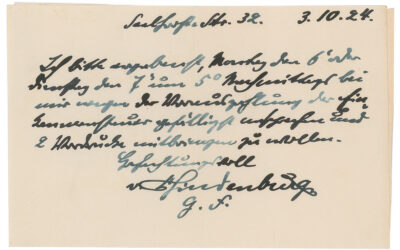 Seelhorststr. 32. 3.10.24.
Ich bitte ergebenst, Montag den 6ᵗ oder
Dienstag den 7ᵗ um 5⁰ Nachmittags bei
mir wegen der Vorauszahlung der Ein-
kommensteuer gefälligst vorsprechen und
2 Vordrucke mitbringen zu wollen.
Hochachtungsvoll
v. Hindenburg
G. F.